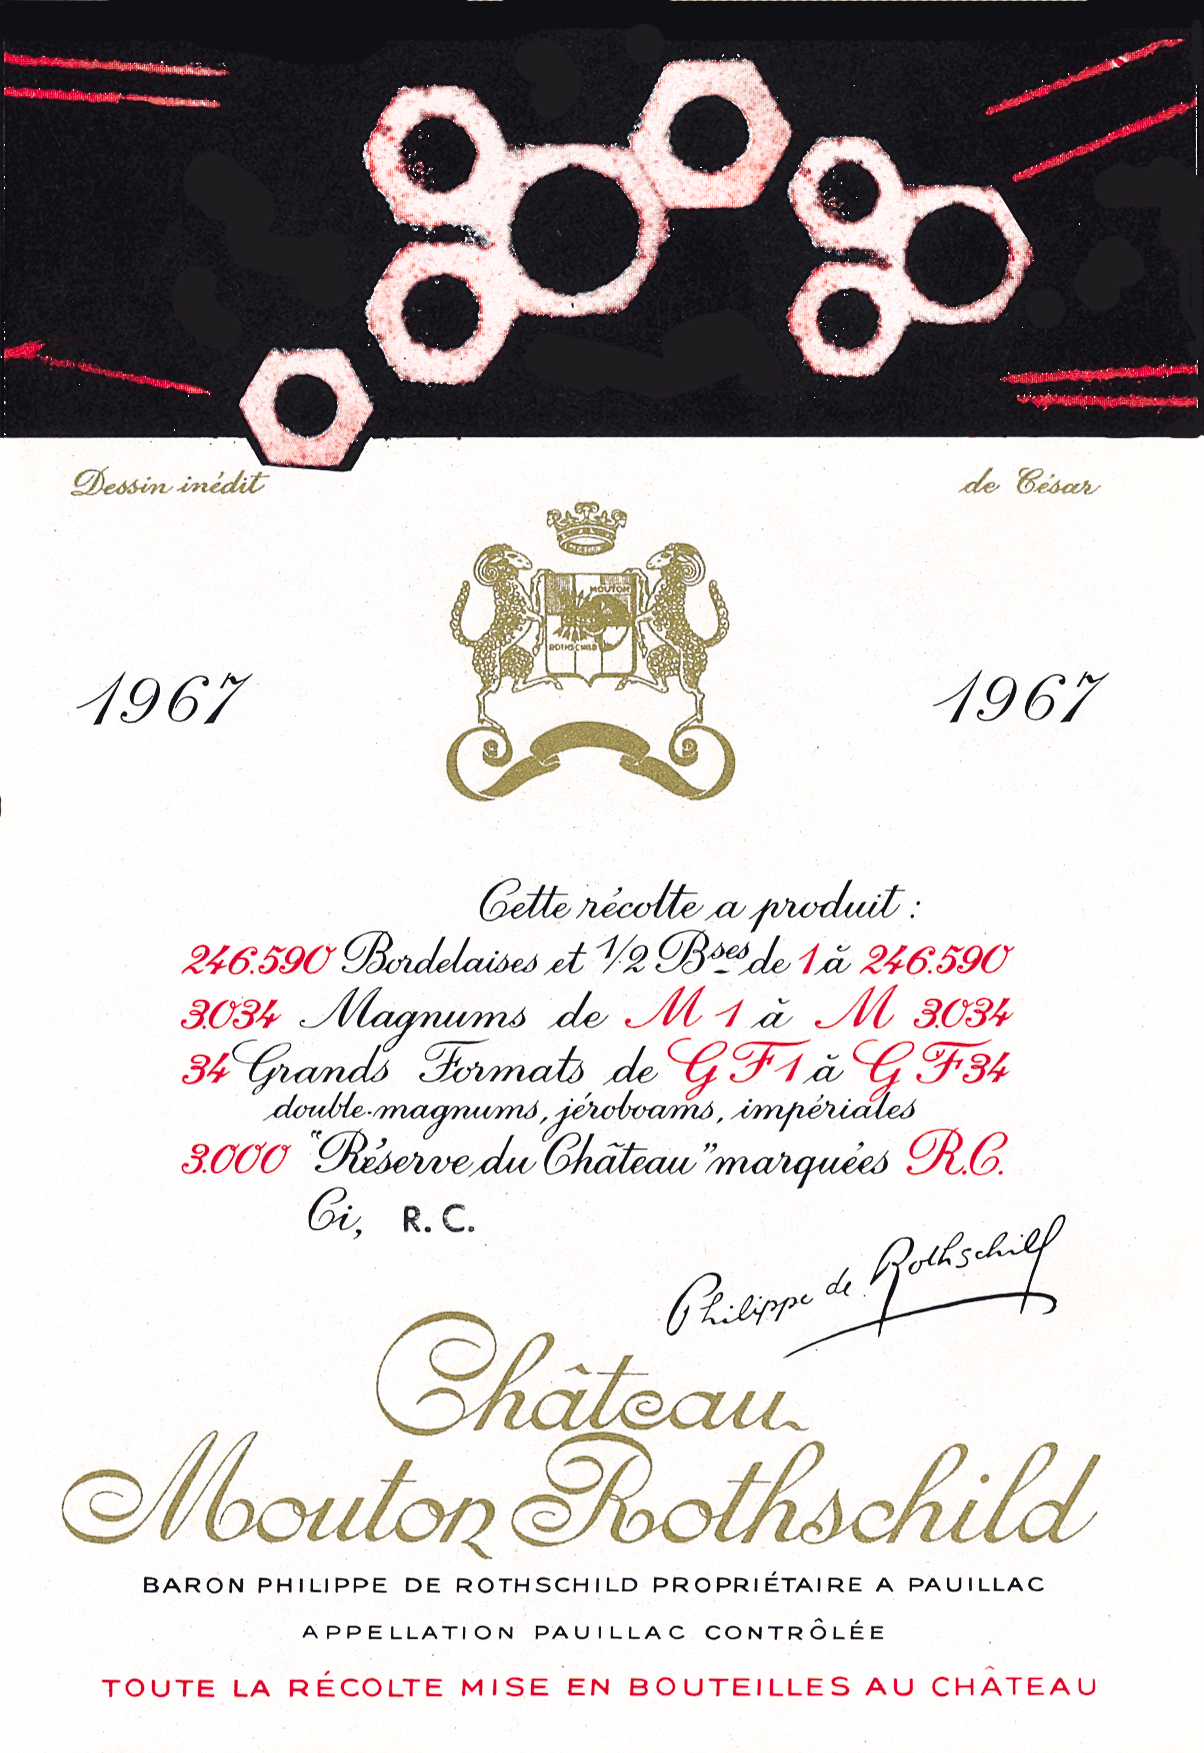 Dessin inédit de César
MOUTON
ROTHSCHILD
1967 1967
Cette récolte a produit :
246.590 Bordelaises et 1/2 Bses de 1 à 246.590
3.034 Magnums de M 1 à M 3.034
34 Grands Formats de G F 1 à G F 34
double-magnums, jéroboams, impériales
3.000 "Réserve du Château" marquées R.C.
Ci, R. C.
Philippe de Rothschild
Château
Mouton Rothschild
BARON PHILIPPE DE ROTHSCHILD PROPRIÉTAIRE A PAUILLAC
APPELLATION PAUILLAC CONTRÔLÉE
TOUTE LA RÉCOLTE MISE EN BOUTEILLES AU CHÂTEAU